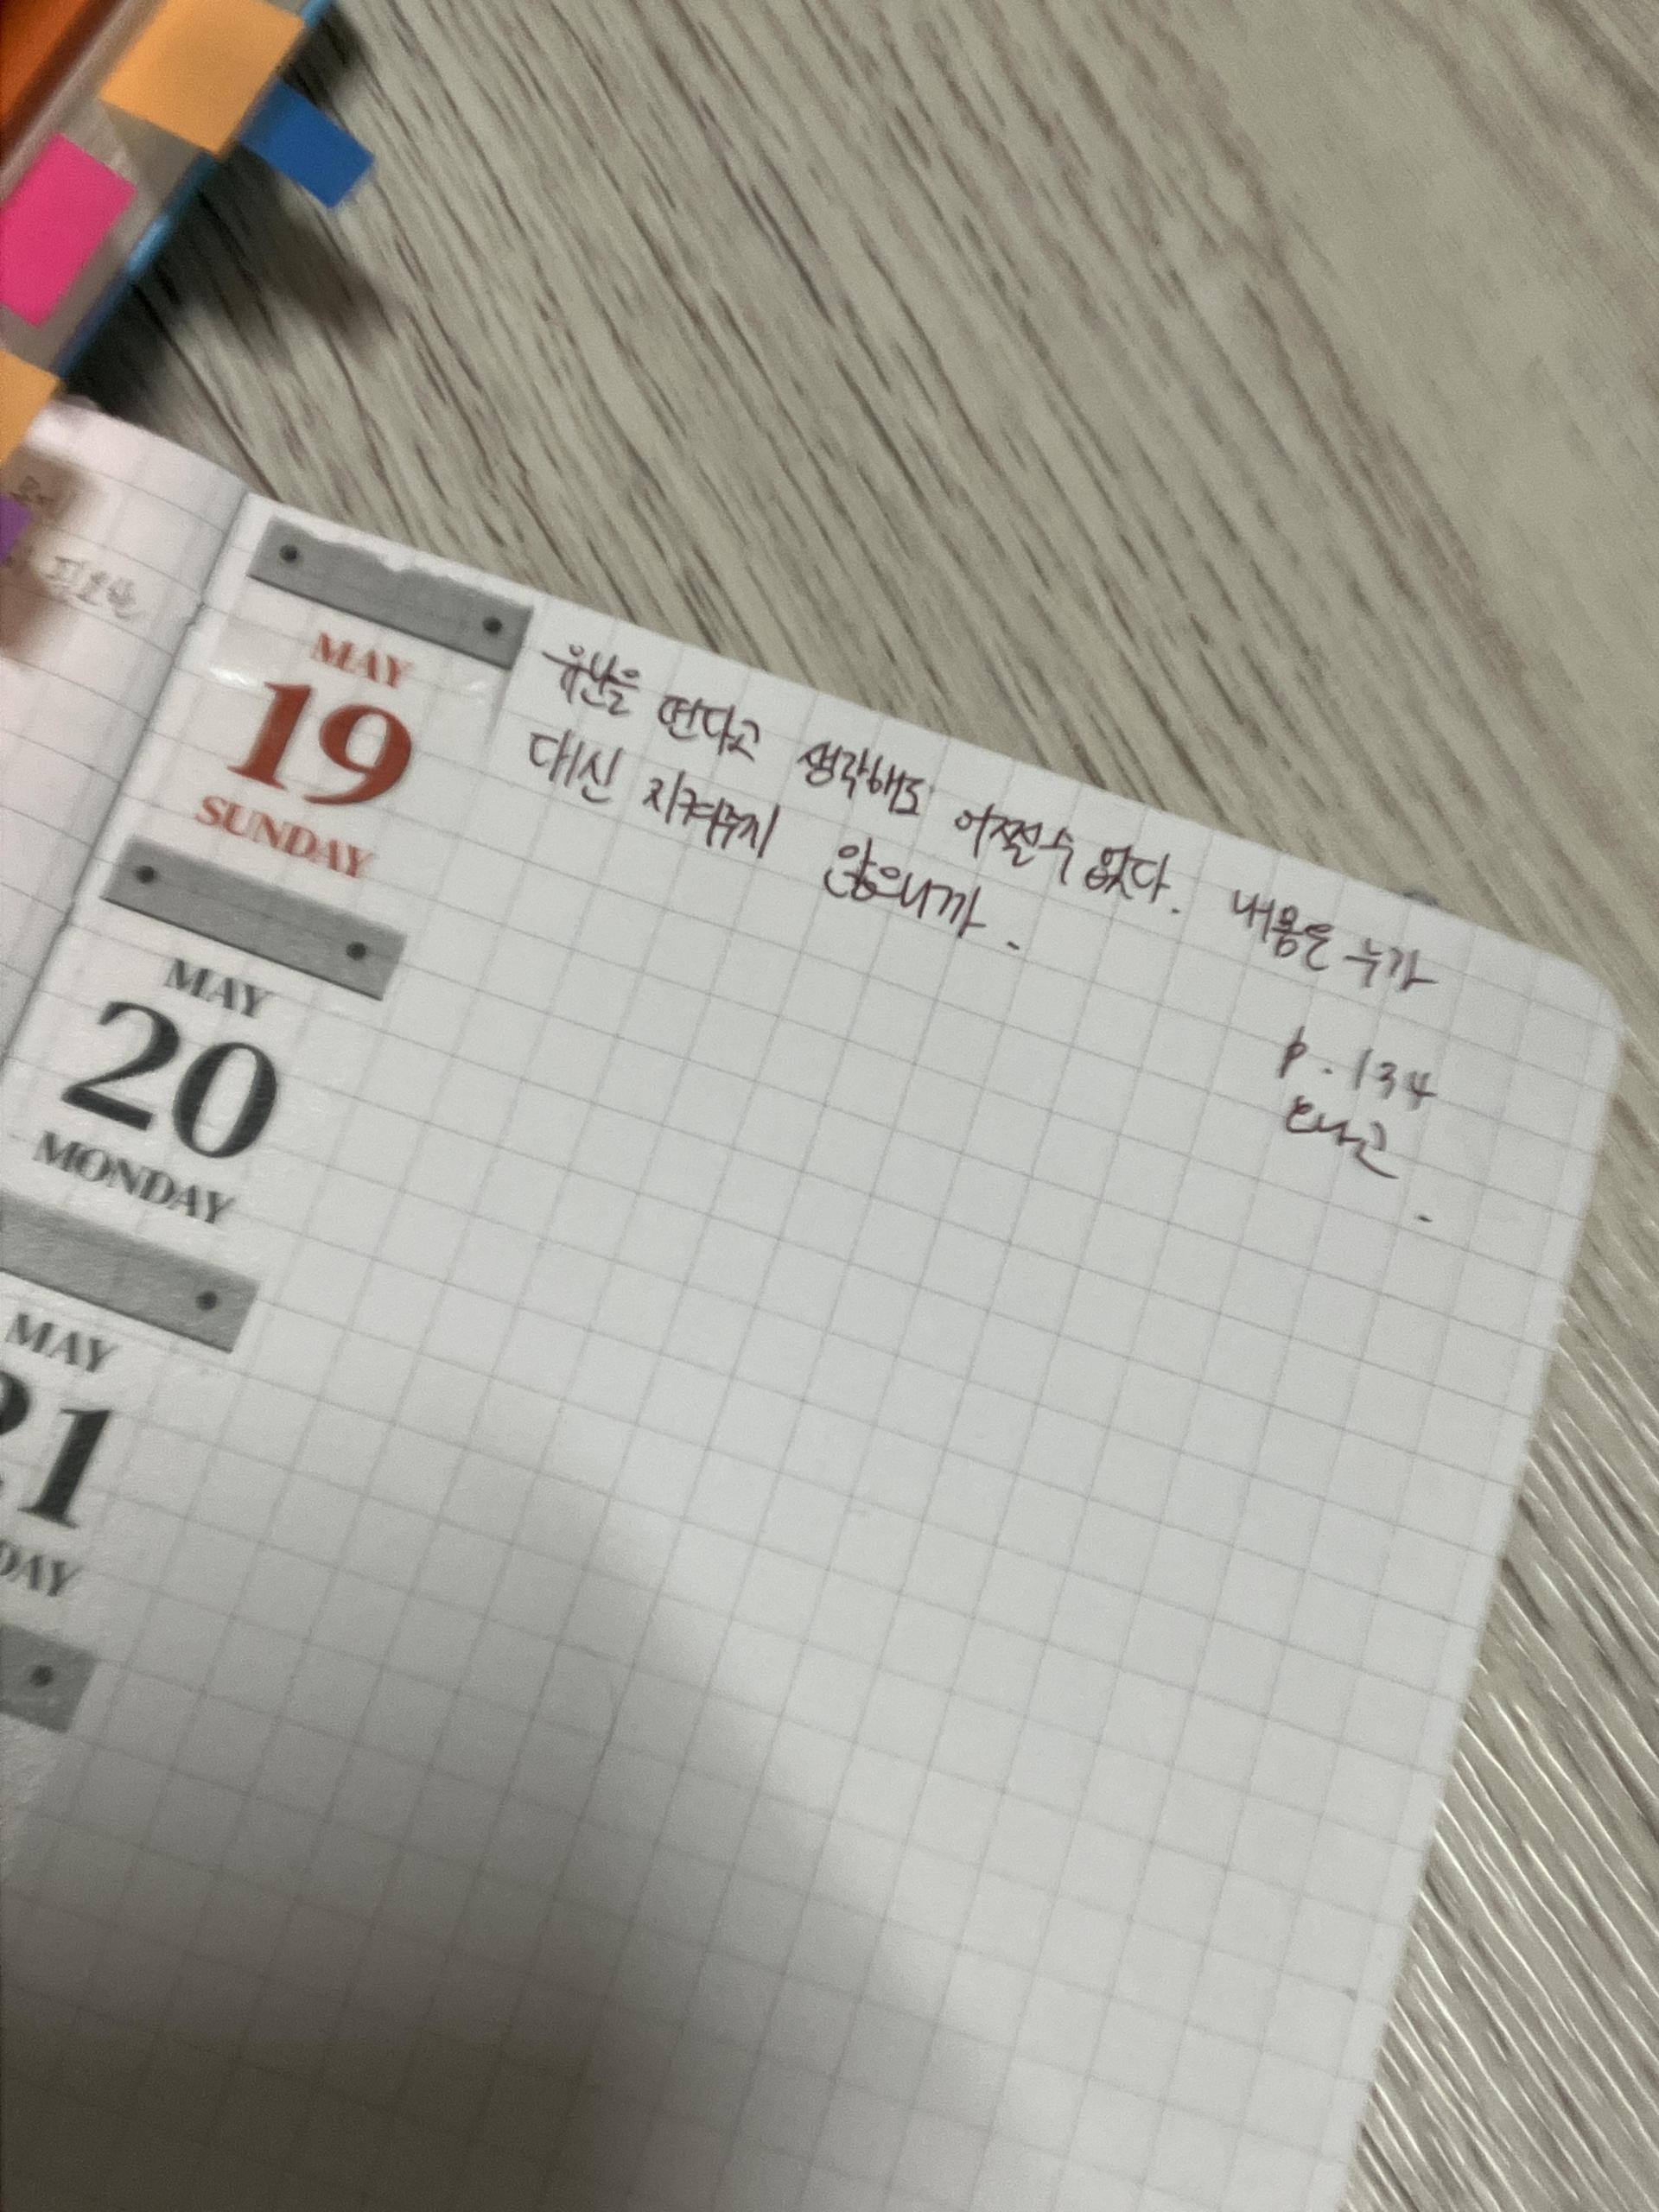 MAY
19
SUNDAY
유난을 떤다고 생각해도 어쩔수 없다. 내몸은 누가
대신 지켜주지 않으니까.
p. 134
MAY
20
MONDAY
MAY
21
DAY
필요한